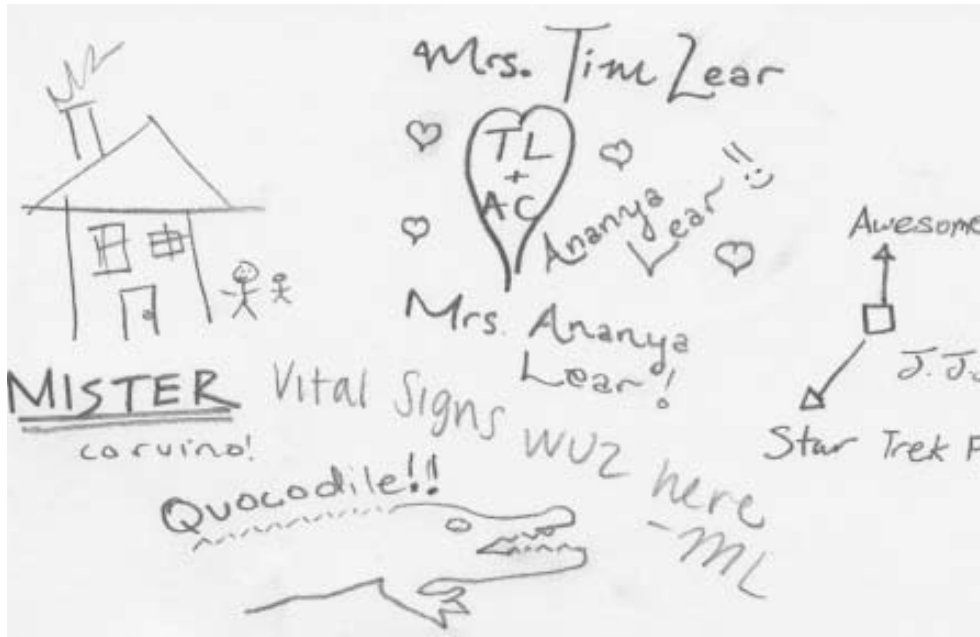 Mrs. Tim Lear
TL
+
AC
Ananya
Lear!!
Mrs. Ananya
Lear!
Awesome
J.J.
Star Trek F
MISTER
corvino!
Vital Signs
wuz here
-ML
Quocodile!!